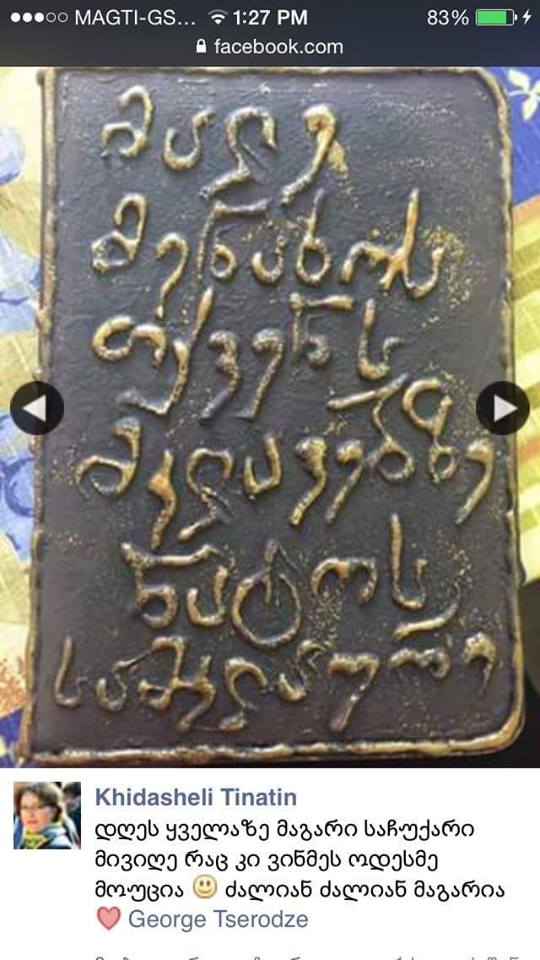 ●●●○○ MAGTI-GS... 1:27 PM 83%
facebook.com
მალე
მენახოს
თქვენს
მკლავებზე
ნატოს
სამკლაური
Khidasheli Tinatin
დღეს ყველაზე მაგარი საჩუქარი
მივიღე რაც კი ვინმეს ოდესმე
მოუცია 🙂 ძალიან ძალიან მაგარია
❤ George Tserodze